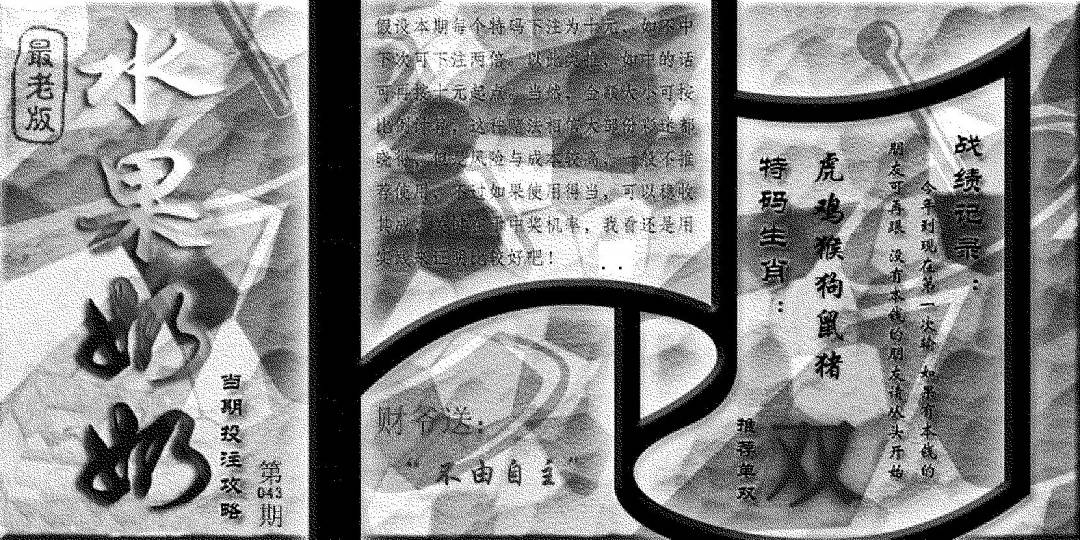 最老版
水果奶奶
当期投注攻略
第043期
假设本期每个特码下注为十元，如不中
下次可下注两倍，以此类推，如中的话
可再按十元起点。当然，金额大小可按
比例计算，这种赌法相信大部份彩迷都
晓得，但是风险与成本较高，一般不推
荐使用，不过如果使用得当，可以稳收
其成，至于中奖机率，我看还是用
实践来证明比较好吧！
财爷送：
“不由自主”
战绩记录：
今年到现在第一次输 如果有本钱的
朋友可再跟 没有本钱的朋友请从头开始
虎鸡猴狗鼠猪
特码生肖：
推荐单双
双